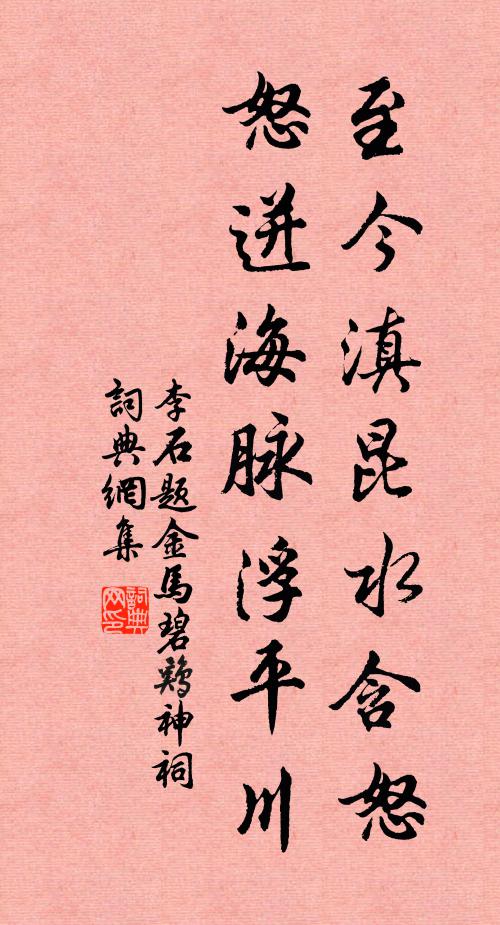 至今滇昆水含怒
怒迸海脉浮平川
李石题金馬碧鷄神祠
詞典網集
詞典网印